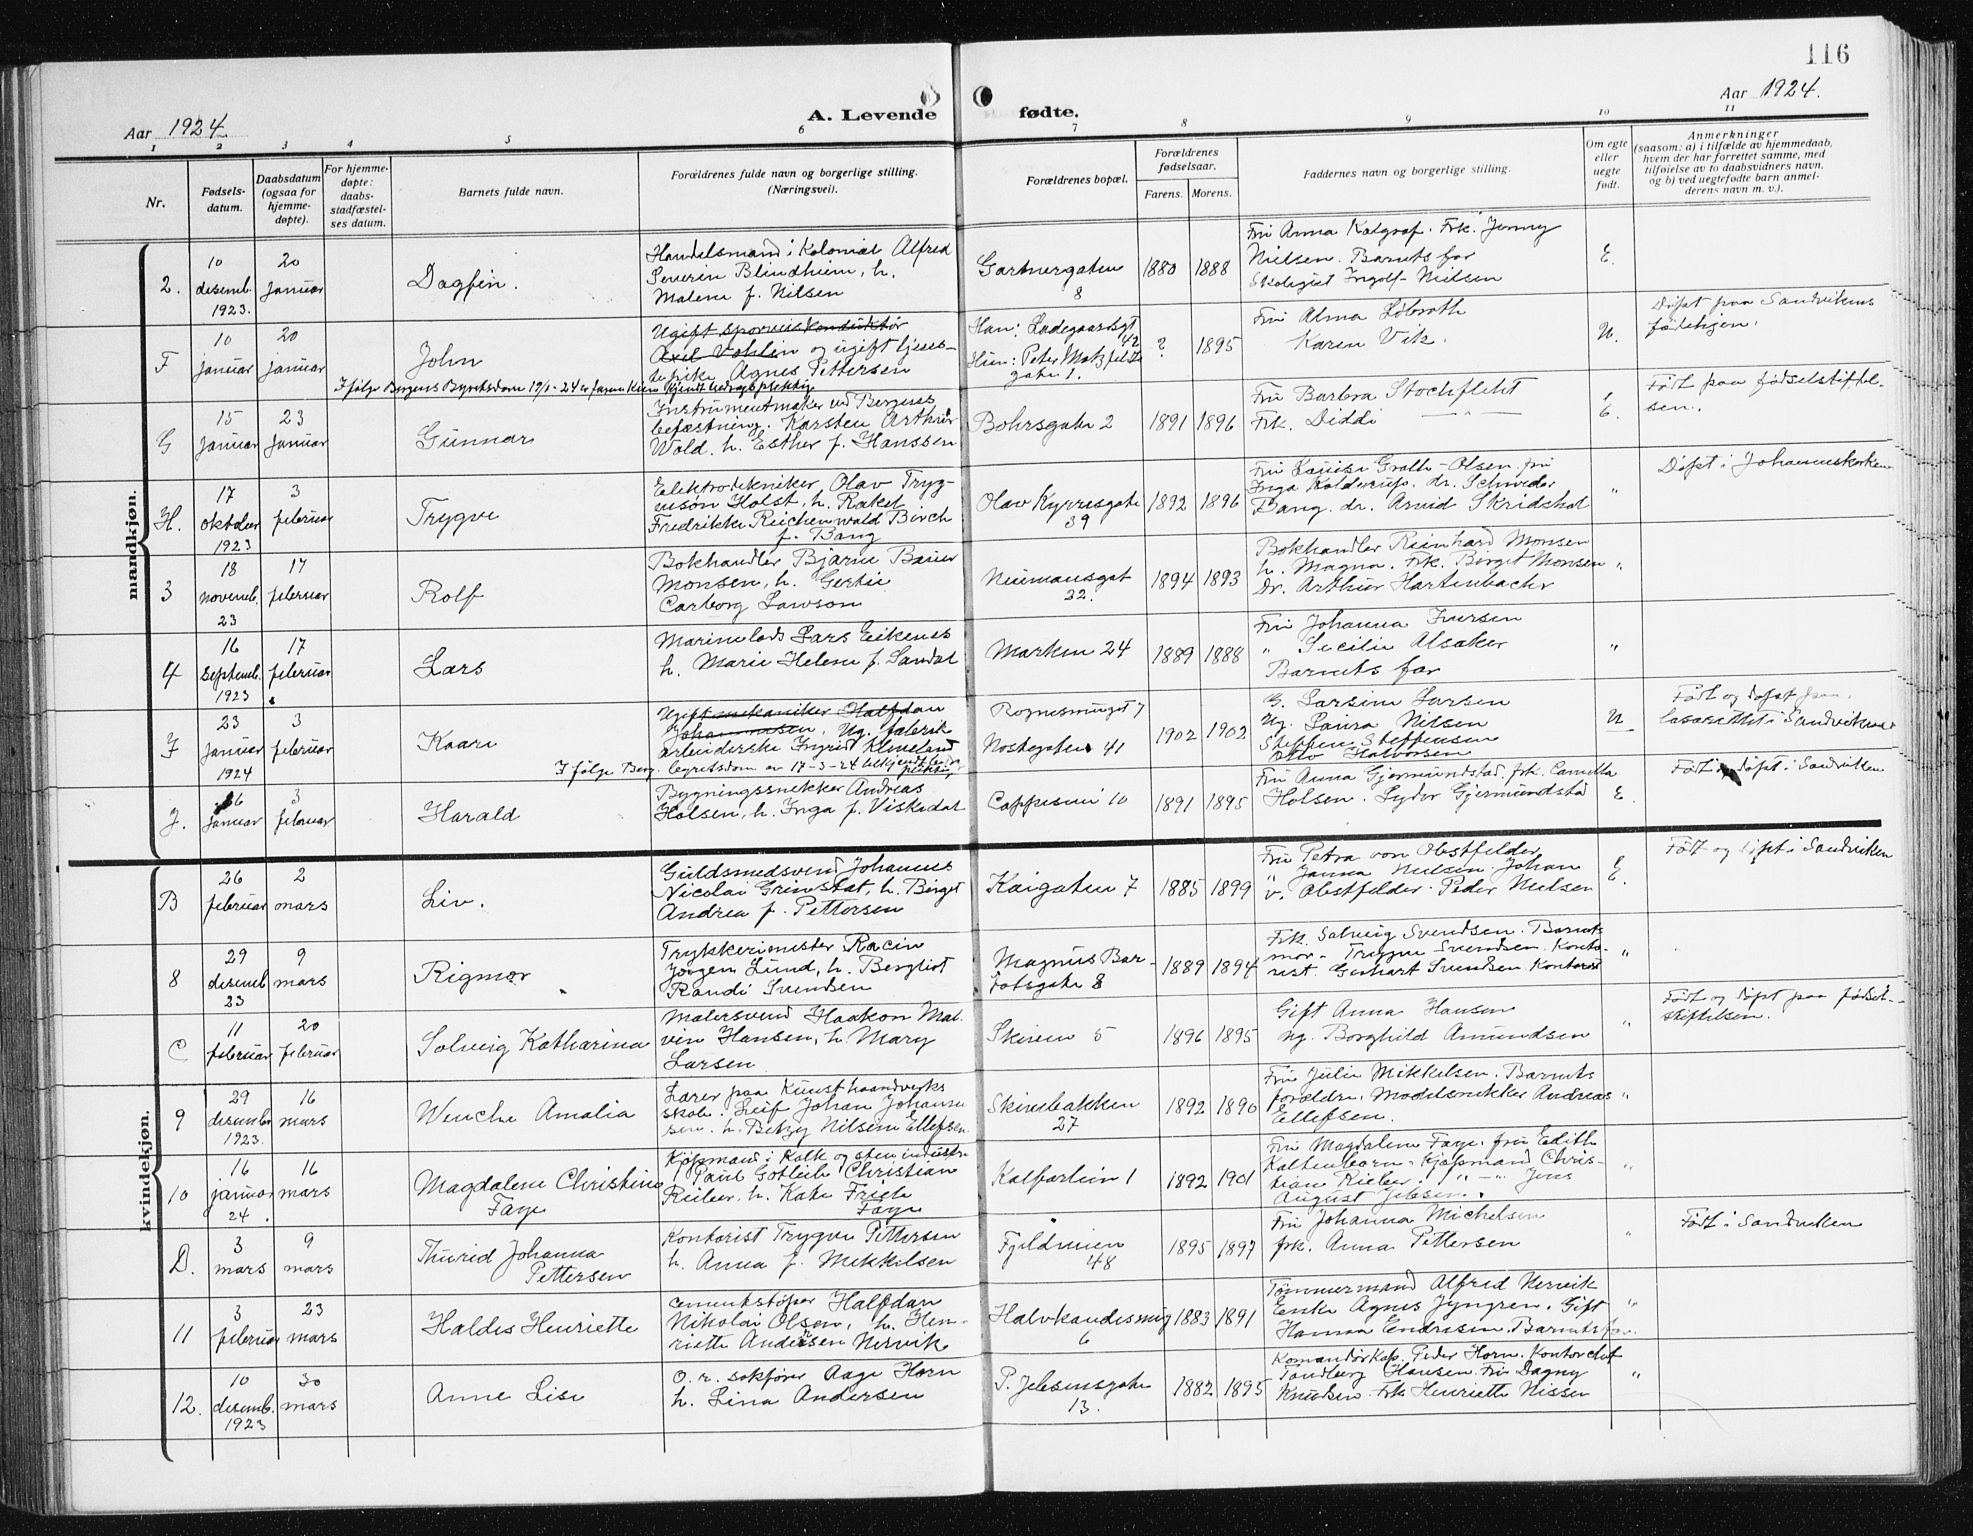 116
Aar 1924.
A. Levende
fødte.
Aar 1924.
1 2 3 4 5 6 7 8 9 10 11
Nr.
Fødsels-
datum.
Daabsdatum
(ogsaa for
hjemme-
døpte).
For hjemme-
døpte:
daabs-
stadfæstel-
ses datum.
Barnets fulde navn.
Forældrenes fulde navn og borgerlige stilling.
(Næringsvei).
Forældrenes bopæl.
Forældrenes
fødselsaar.
Farens. Morens.
Faddernes navn og borgerlige stilling.
Om egte
eller
uegte
født.
Anmerkninger
(saasom: a) i tilfælde av hjemmedaab,
hvem der har forrettet samme, med
tilføielse av to daabsvidners navn.
og b) ved uegtefødte barn anmel-
derens navn m. v.).
mandkjøn.
2. 10 desemb. 1923. 20 januar Dagfin.
Handelsmand i Kolonial Alfred
Severin Blindheim, h.
Malene f. Nilsen
Gartnergaten
8
1880 1888
Fru Anna Kalgraf. Frk. Jenny
Nielsen. Barnets far
Ingolf Nielsen
E.
F 10 januar 20 januar John
Ugift sporveiskonduktør
Axel Vohlin og ugift tjenes-
tepike Agnes Pettersen
I følge Bergens Byretsdom 19/1-24 er faren kun kjendt bidragspliktig
Han: Ladegaardsgt
42
Hun: Peter Motzfeldts
gate 1.
? 1895
Fru Alma Løbroth
Karen Vik.
U.
Døpt paa Sandvikens
fødehjem.
G 15 januar 23 januar Gunnar
Instrumentmaker ved Bergens
befæstning. Karsten Arthur
Wold. h. Esther f. Hanssen
Bohrsgate 2
1891 1896
Fru Barbra Stochfleht
Frk. Diddi — " —
E.
Født paa fødselstiftel-
sen.
H. 17 oktober 1923 3 februar Trygve
Elektrotekniker Olav Tryg-
vesøn Holst, h. Rakel
Fredrikke Reichenwald Birch
f. Bang
Olav Kyrresgate
39
1892 1896
Fru Louise Grath-Olsen fru
Inga Kolderup. dr. Schrøder
Bang. dr. Arvid Skridshol
"
Døpt i Johanneskirken
3 18 novemb. 23 17 februar Rolf
Bokhandler Bjarne Beuer
Monsen, h. Gertie
Carborg Lawson
Neumansgat
32.
1894 1893
Bokhandler Reinhard Monsen
h. Magna. Frk. Birget Monsen
Dr. Arthur Hartenbachr
"
4 16 septemb. 1923 17 februar Lars
Marinelods Lars Eikenes
h. Marie Helene f. Sandal
Marken 24
1889 1888
Fru Johanna Iversen
" Secilie Alsaker
Barnets far
"
I 23 januar 1924 3 februar Kaare
Ugift mekaniker Halfdan
Johannesen, Ug. fabrik
arbeiderske Ingrid Kleveland
I følge Berg. byretsdom av 17-3-24 bekjendt bidrags
pliktig
Rognesmuget 7
Nostegaten 41
1902 1902
G. Larsine Larsen
Ug. Laura Nilsen
Steffen Steffensen
Otto Halvorsen
U
Født og døpt paa
lasarettet i Sandviken
J. 26 januar 3 februar Harald
Bygningssnekker Andreas
Holsen, h. Inga f. Viskedal
Cappesvei 10
1891 1895
Fru Anna Gjermundstad. frk. Camilla
Holsen. Syder Gjermundstad
E.
Født og døpt i Sandviken
kvindekjøn.
B 26 februar 2 mars Liv.
Guldsmedsvend Johannes
Nicolai Grinstat, h. Birget
Andrea f. Pettersen
Kaigaten 7
1885 1899
Fru Petra von Obstfelder
" Janna Nielsen Johan
v. Obstfelder. Peder Nielsen
E.
Født og døpt i Sandviken
8 29 desemb 23 9 mars Rigmor
Trykkerimester Racin
Jørgen Lund, h. Bergliot
Randi Svendsen
Magnus Bar-
fotsgate 8
1889 1894
Frk. Solveig Svendsen. Barnets
mor. Trygve Svendsen. Konto-
rist. Gerhart Svendsen Kontorist
"
C 11 februar 20 februar Solveig Katharina
Malersvend Haakon Mal-
vin Hansen, h. Mary
Larsen
Skiveien 5
1896 1895
Gift Anna Hansen
ug. Borghild Amundsen
"
Født og døpt paa fødsels-
stiftelsen.
9 29 desember 1923. 16 mars Wenche Amalia
Lærer paa Kunsthaandverks
skole. Leif Johan Johanne
sen. h. Betzy Nilsine Ellefsen
Skivebakken
27
1892 1890
Fru Julie Mikkelsen. Barnets
forældre. Modelsnekker Andreas
Ellefsen.
"
10 16 januar 24. 16 mars Magdalene Christine
Faye
Kjøpmand i Kalk og stenindustri
Paul Gotleib Christian
Rieber, h. Kate Friele
Faye
Kalfarlien 1
1892 1901
Fru Magdalene Faye. fru Edith
Kaltenborn. Kjøpmand Chris-
tian Rieber. " — " Jens
August Jebsen.
"
D. 3 mars 9 mars Thurid Johanna
Pettersen
Kontorist Trygve Pettersen
h. Anna f. Mikkelsen
Fjeldveien
48
1895 1897
Fru Johanna Michelsen
frk. Anna Pettersen
"
Født i Sandviken
11 3 februar 23 mars Haldis Henriette
Cementstøper Halfdan
Nikolai Olsen, h. Hen-
riette Andersen Nervik
Halvkandesmug
6
1883 1891
Tømmermand Alfred Nervik
Enke Agnes Jyngren. Gift
Hanna Endresen. Barnets far.
"
12. 10 desemb. 1923 30 mars Anne Lise
O. r. sakfører Aage Horn
h. Lina Andersen
P. Jebsensgate
13.
1882 1895
Komandørkap. Peder Horn. Kontorchef
Tandberg Hansen. Fru Dagny
Knudsen. Frk Henriette Nissen
"